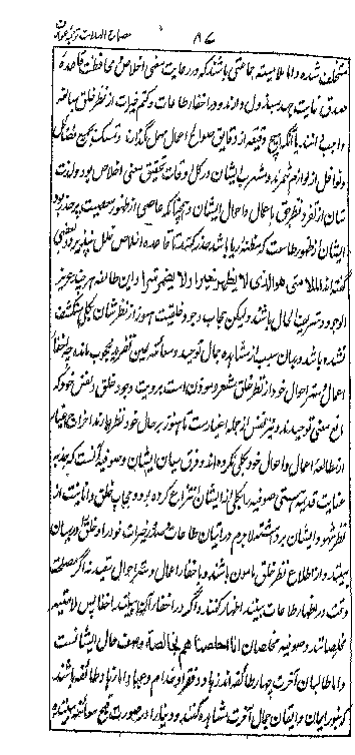 ۸۷ مصباح الهدایت ترجمهٔ عوارف
شده و اما ملامتیه جماعتی باشند که در رعایت معنی اخلاص و محافظت قاعدهٔ
صدق غایت جهد مبذول دارند و در اخفاء طاعات و کتم خیرات از نظر خلق مبالغه
واجب بینند با آنکه هیچ دقیقه از دقایق صوالح اعمال مهمل نگذارند و تمسک بجمیع فضائل
و نوافل از لوازم شمرند و مشرب ایشان در کل اوقات تحقیق معنی اخلاص بود و لذت
شان از تفرد نظر حق باعمال و احوال ایشان و همچنانکه عاصی از ظهور معصیت پرحذر بود
ایشان از ظهور طاعت که مظنه ریا باشد حذر کنند تا قاعده اخلاص خلل نپذیرد و بعضی
گفته‌اند الملامتی هو الذی لا یظهر خیرا و لا یضمر شرا و این طائفه هرچند عزیز
الوجود و شریف الحال باشند ولیکن حجاب وجود خلقیت هنوز از نظرشان بکلی منکشف
نشده باشد و بدان سبب از مشاهده جمال توحید و معاینه عین تفرید محجوب مانده چه اخفاء
اعمال و ستر احوال خود از نظر خلق مشعر و موذن است برویت وجود خلق و نفس خود که
مانع معنی توحیدند و نیز نفس از جمله اغیارست تا هنوز بر حال خود نظر دارند اخراج اغیار
از مطالعه اعمال و احوال خود بکلی نکرده‌اند و فرق میان ایشان و صوفیه آنست که جذبه
عنایت قدیمه هستی صوفیه را بکلی از ایشان انتزاع کرده بود و حجاب خلق و انانیت از
نظر شهود ایشان برداشته لاجرم در اتیان طاعات و صدور خیرات خود را و خلق را در میان
نبینند و از اطلاع نظر خلق مامون باشند و باخفاء اعمال و ستر احوال مقید نه اگر مصلحت
وقت در اظهار طاعات بینند اظهار کنند و اگر در اخفاء آن بینند اخفا پس ملامتیه
مخلصانند و صوفیه مخلصان انا اخلصناهم بخالصة وصف حال ایشانست
و اما طالبان آخرت چهار طائفه‌اند زهاد و فقرا و خدام و عباد و اما زهاد طائفه باشند
که بنور ایمان و ایقان جمال آخرت مشاهده کنند و دنیا را در صورت قبح معاینه بینند